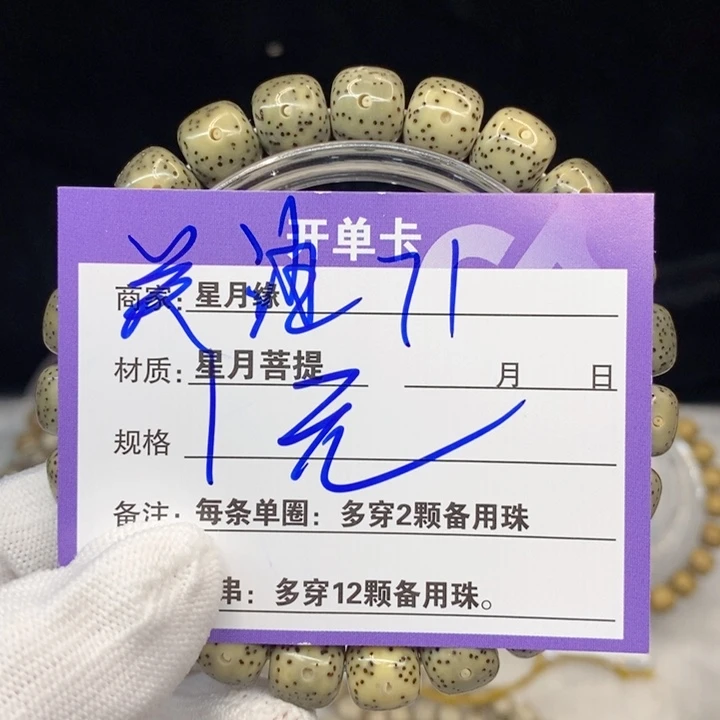 开单卡
商家：星月缘
材质：星月菩提 月 日
1元
规格
备注：每条单圈：多穿2颗备用珠
串：多穿12颗备用珠。